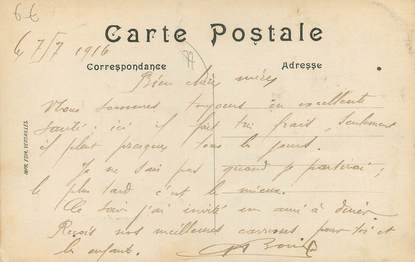 66
Carte Postale
le 7/7 1916
Correspondance
Adresse
Bien chère mère
Nous sommes toujours en excellente
santé; ici il fait très frais, seulement
il pleut presque tous les jours.
Je ne sais pas quand je partirai;
le plus tard c'est le mieux.
Ce soir j'ai invité un ami à dîner.
Reçois nos meilleures caresses pour toi et
les enfants.
VERSAILLES